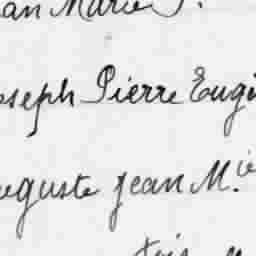 an Marie J.
oseph Pierre Eugi
uguste Jean M.ie